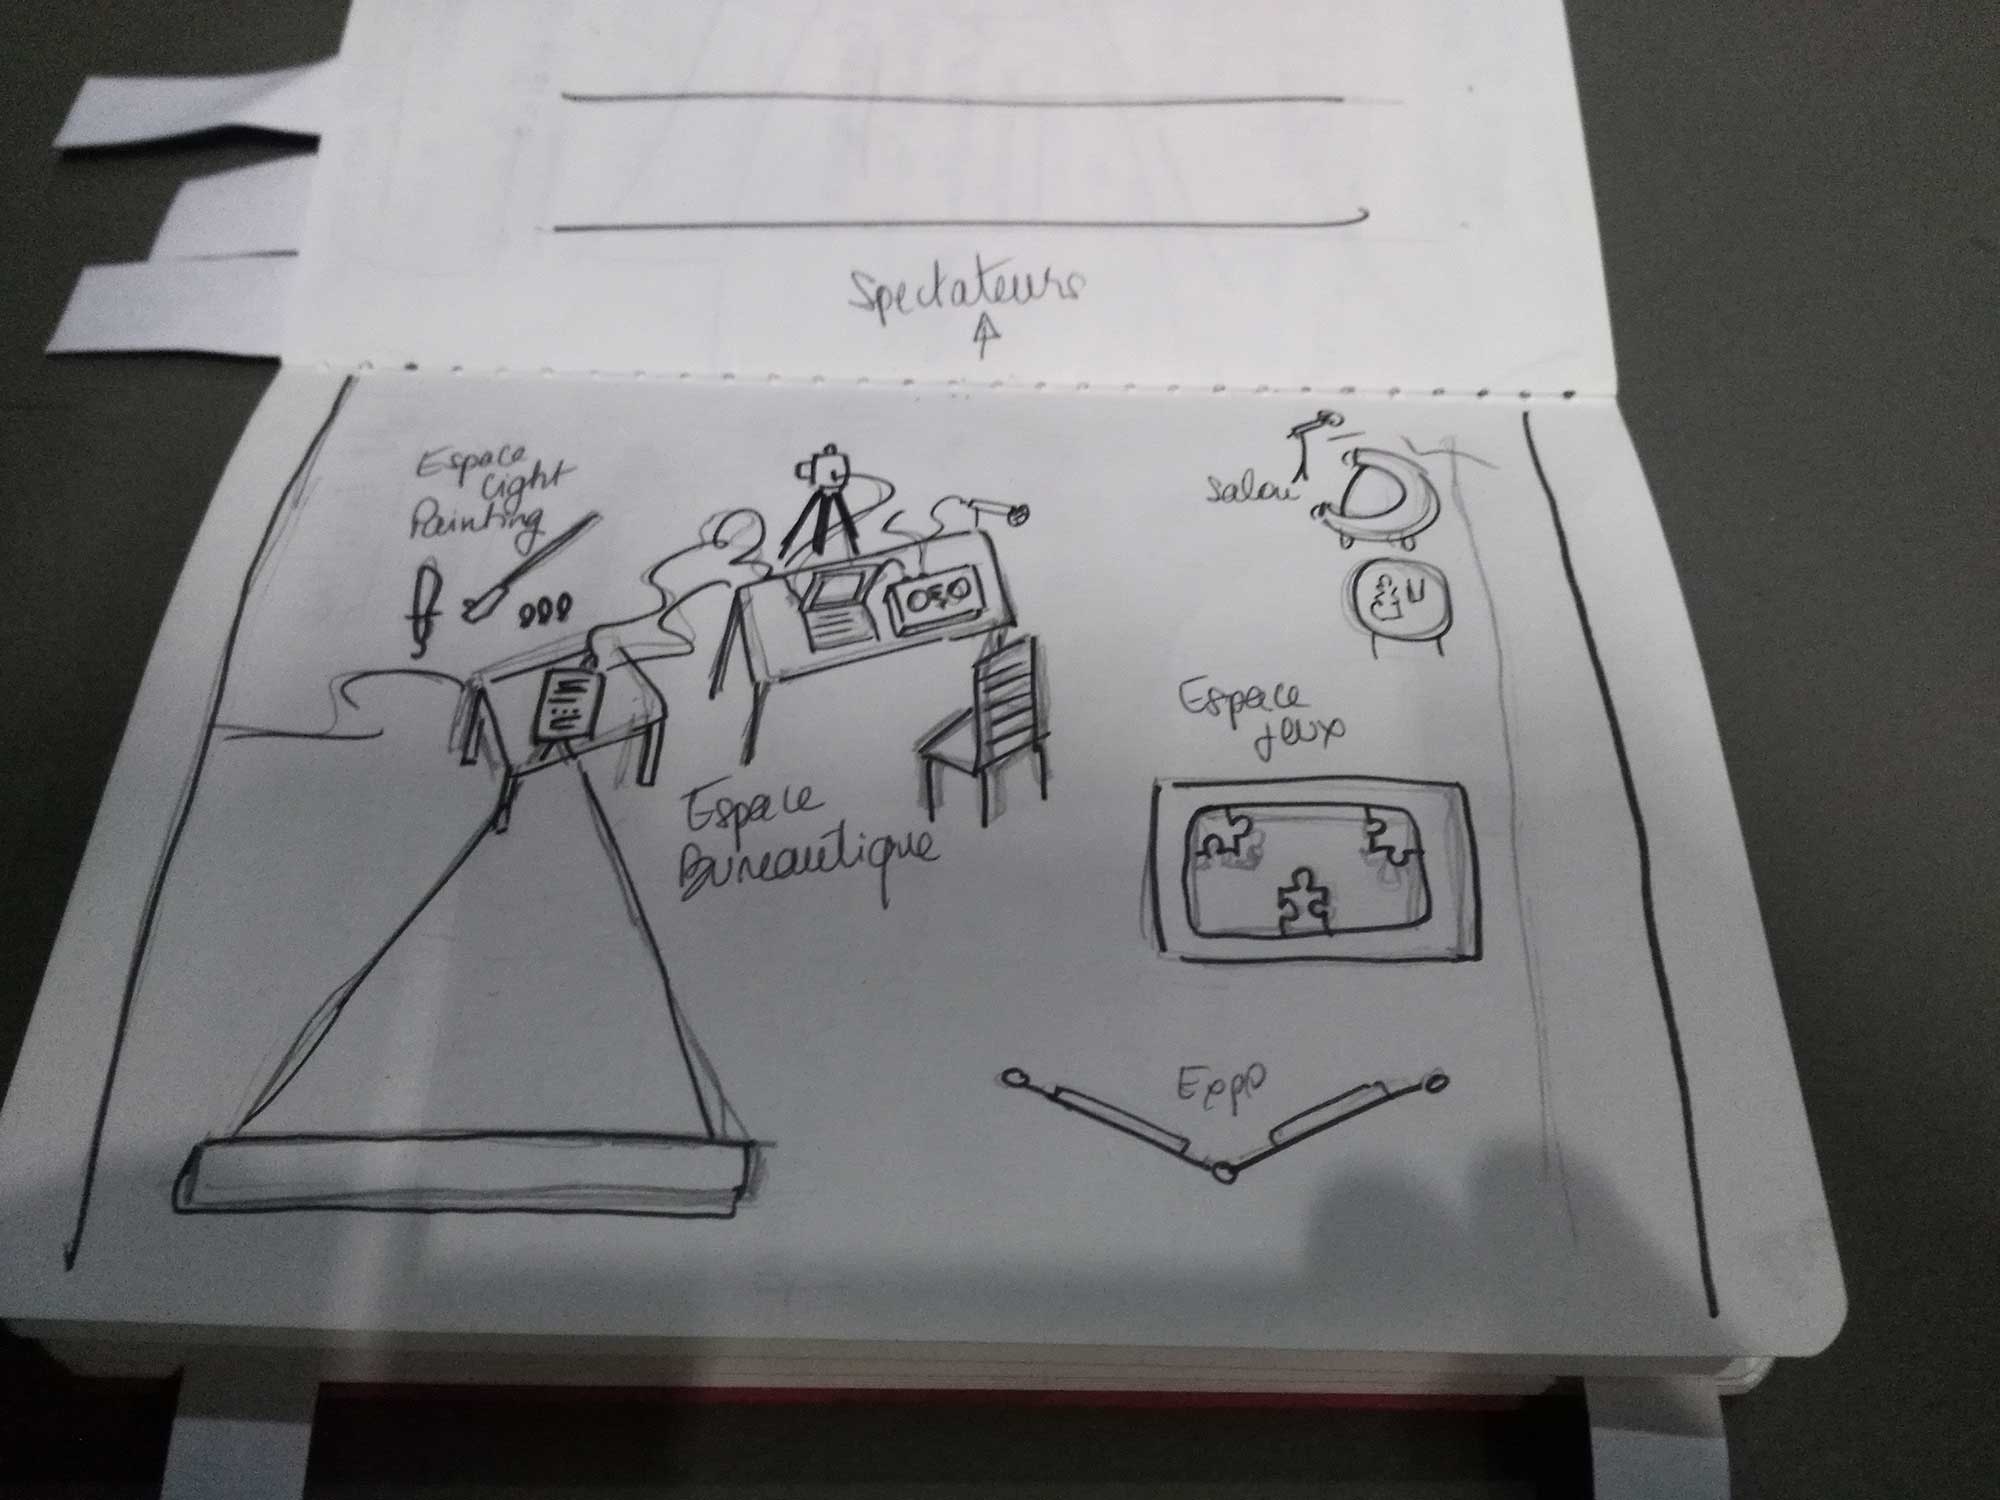 Spectateurs
Espace
Light
Painting
Salon
Espace
Jeux
Espace
Bureautique
Expo